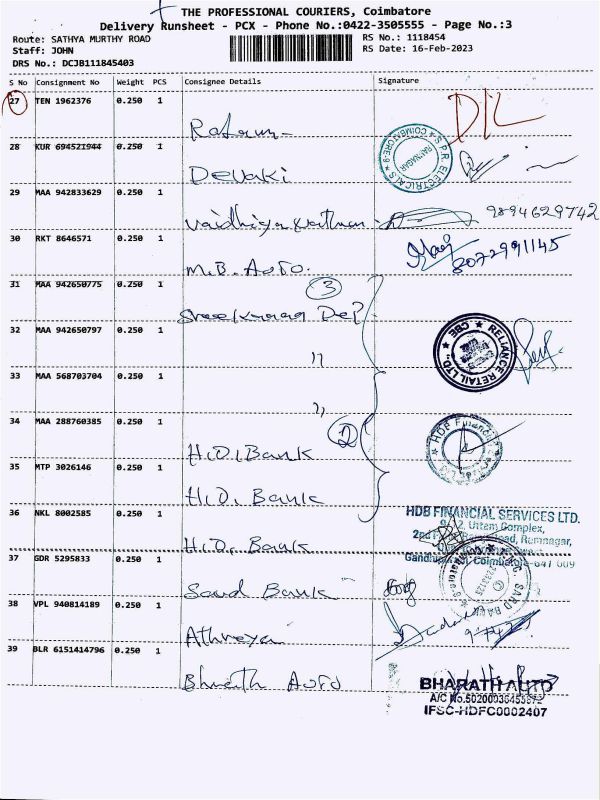 THE PROFESSIONAL COURIERS, Coimbatore
Delivery Runsheet - PCX - Phone No.:0422-3505555 - Page No.:3
Route: SATHYA MURTHY ROAD
RS No.: 1118454
Staff: JOHN
RS Date: 16-Feb-2023
DRS No.: DCJB111845403
S No Consignment No Weight PCS Consignee Details Signature
27 TEN 1962376 0.250 1
DIL
28 KUR 694521944 0.250 1
Devaki
S.P.R. ELECTRICALS COIMBATORE-9
RAMNAGAR
29 MAA 942833629 0.250 1
Vaidhiyanathan
9894629742
30 RKT 8646571 0.250 1
M.B. Auto.
8072991145
31 MAA 942650775 0.250 1
3
Sreekumar Dep
32 MAA 942650797 0.250 1
"
RELIANCE RETAIL LTD. CBE
33 MAA 568703704 0.250 1
"
34 MAA 288760385 0.250 1
2
H.D. Bank
HDB Financial
35 MTP 3026146 0.250 1
H.D. Bank
36 NKL 8002585 0.250 1
H.D. Bank
HDB FINANCIAL SERVICES LTD.
Uttam Complex,
Road, Ramnagar,
Coimbatore-641 009
37 GDR 5295833 0.250 1
Sard Bank
SARD BANK
38 VPL 940814189 0.250 1
Athreya
39 BLR 6151414796 0.250 1
Bharath Auto
BHARATH AUTO
A/C No.50200036453872
IFSC-HDFC0002407